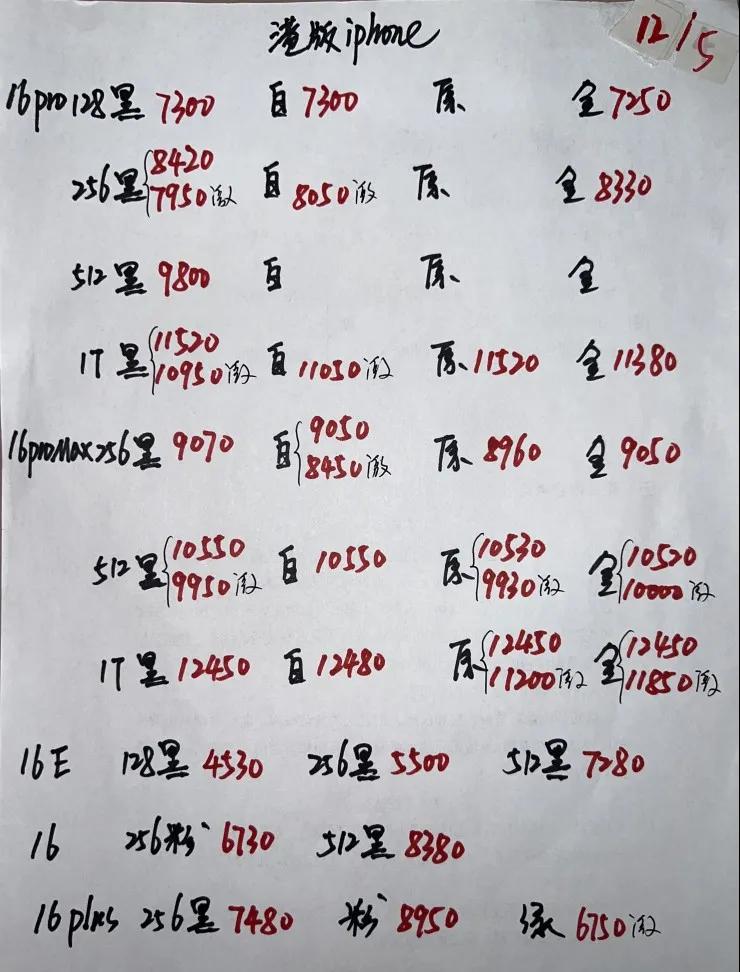 港版iphone
12/5
16pro128黑 7300 白 7300 原 金7250
256黑 8420 7950激 白 8050激 原 金 8330
512黑 9800 白 原 金
1T 黑 11520 10950激 白 11050激 原 11520 金 11380
16proMax256黑 9070 白 9050 8450激 原 8960 金 9050
512黑 10550 9950激 白 10550 原 10530 9930激 金 10520 10000激
1T 黑 12450 白 12480 原 12450 11200激 金 12450 11850激
16E 128黑 4530 256黑 5500 512黑 7280
16 256粉 6730 512黑 8380
16plus 256黑 7480 粉 8950 绿 6750激